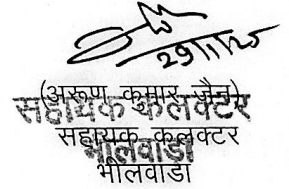 29/11/25
(अरूण कुमार जैन)
सहायक कलक्टर
सहायक कलक्टर
भीलवाडा
भीलवाडा